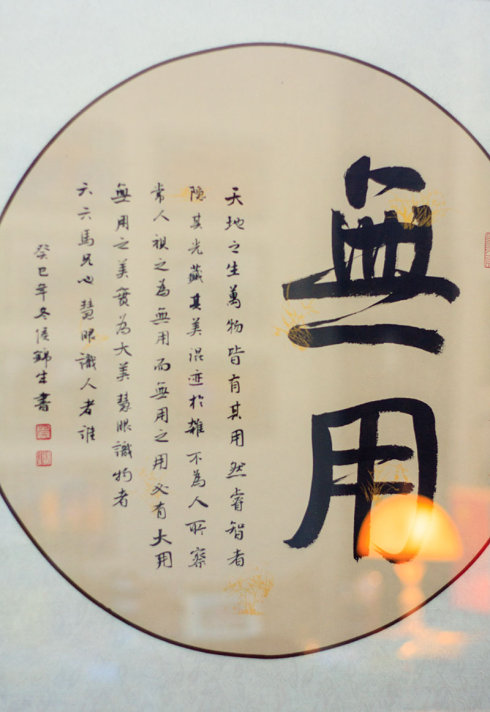 無用
天地之生萬物皆有其用然睿智者
隐其光藏其美混迹於雜不為人所察
常人視之為無用而無用之用必有大用
無用之美實為大美慧眼識物者
六六馬只心慧眼識人者誰
癸巳年冬 錦生書